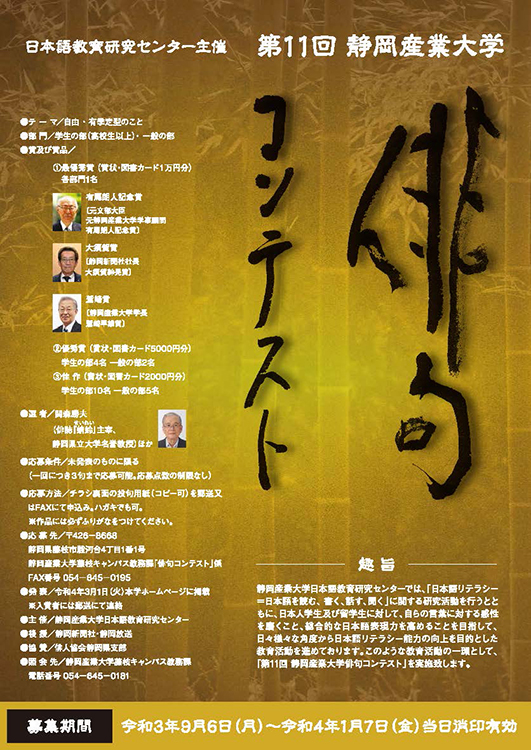 日本語教育研究センター主催　第11回 静岡産業大学
俳句
コンテスト
●テーマ／自由・有季定型のこと
●部 門／学生の部(高校生以上)・一般の部
●賞及び賞品／
①最優秀賞 (賞状・図書カード1万円分)
各部門1名
有馬朗人記念賞
[元文部大臣
元静岡産業大学学事顧問
有馬朗人記念賞]
大須賀賞
[静岡新聞社社長
大須賀紳晃賞]
鷲崎賞
[静岡産業大学学長
鷲崎早雄賞]
②優秀賞 (賞状・図書カード5000円分)
学生の部4名 一般の部2名
③佳 作 (賞状・図書カード2000円分)
学生の部10名 一般の部5名
●選 者／関森勝夫
主宰、
静岡県立大学名誉教授)ほか
●応募条件／未発表のものに限る
(一回につき3句まで応募可能。応募点数の制限なし)
●応募方法／チラシ裏面の投句用紙(コピー可)を郵送又
はFAXにて申込み。ハガキでも可。
※作品には必ずふりがなをつけてください。
●応 募 先／〒426-8668
静岡県藤枝市駿河台4丁目1番1号
静岡産業大学藤枝キャンパス教務課「俳句コンテスト」係
FAX番号 054-645-0195
●発 表／令和4年3月1日(火)本学ホームページに掲載
※入賞者には郵送にて連絡
●主 催／静岡産業大学日本語教育研究センター
●後 援／静岡新聞社・静岡放送
●協 賛／俳人協会静岡県支部
●問 合 先／静岡産業大学藤枝キャンパス教務課
電話番号 054-645-0181
趣旨
静岡産業大学日本語教育研究センターでは、「日本語リテラシー
＝日本語を読む、書く、話す、聞く」に関する研究活動を行うとと
もに、日本人学生及び留学生に対して、自らの言葉に対する感性
を磨くこと、総合的な日本語表現力を高めることを目指して、
日々様々な角度から日本語リテラシー能力の向上を目的とした
教育活動を進めております。このような教育活動の一環として、
「第11回 静岡産業大学俳句コンテスト」を実施致します。
募集期間　令和3年9月6日(月)～令和4年1月7日(金)当日消印有効